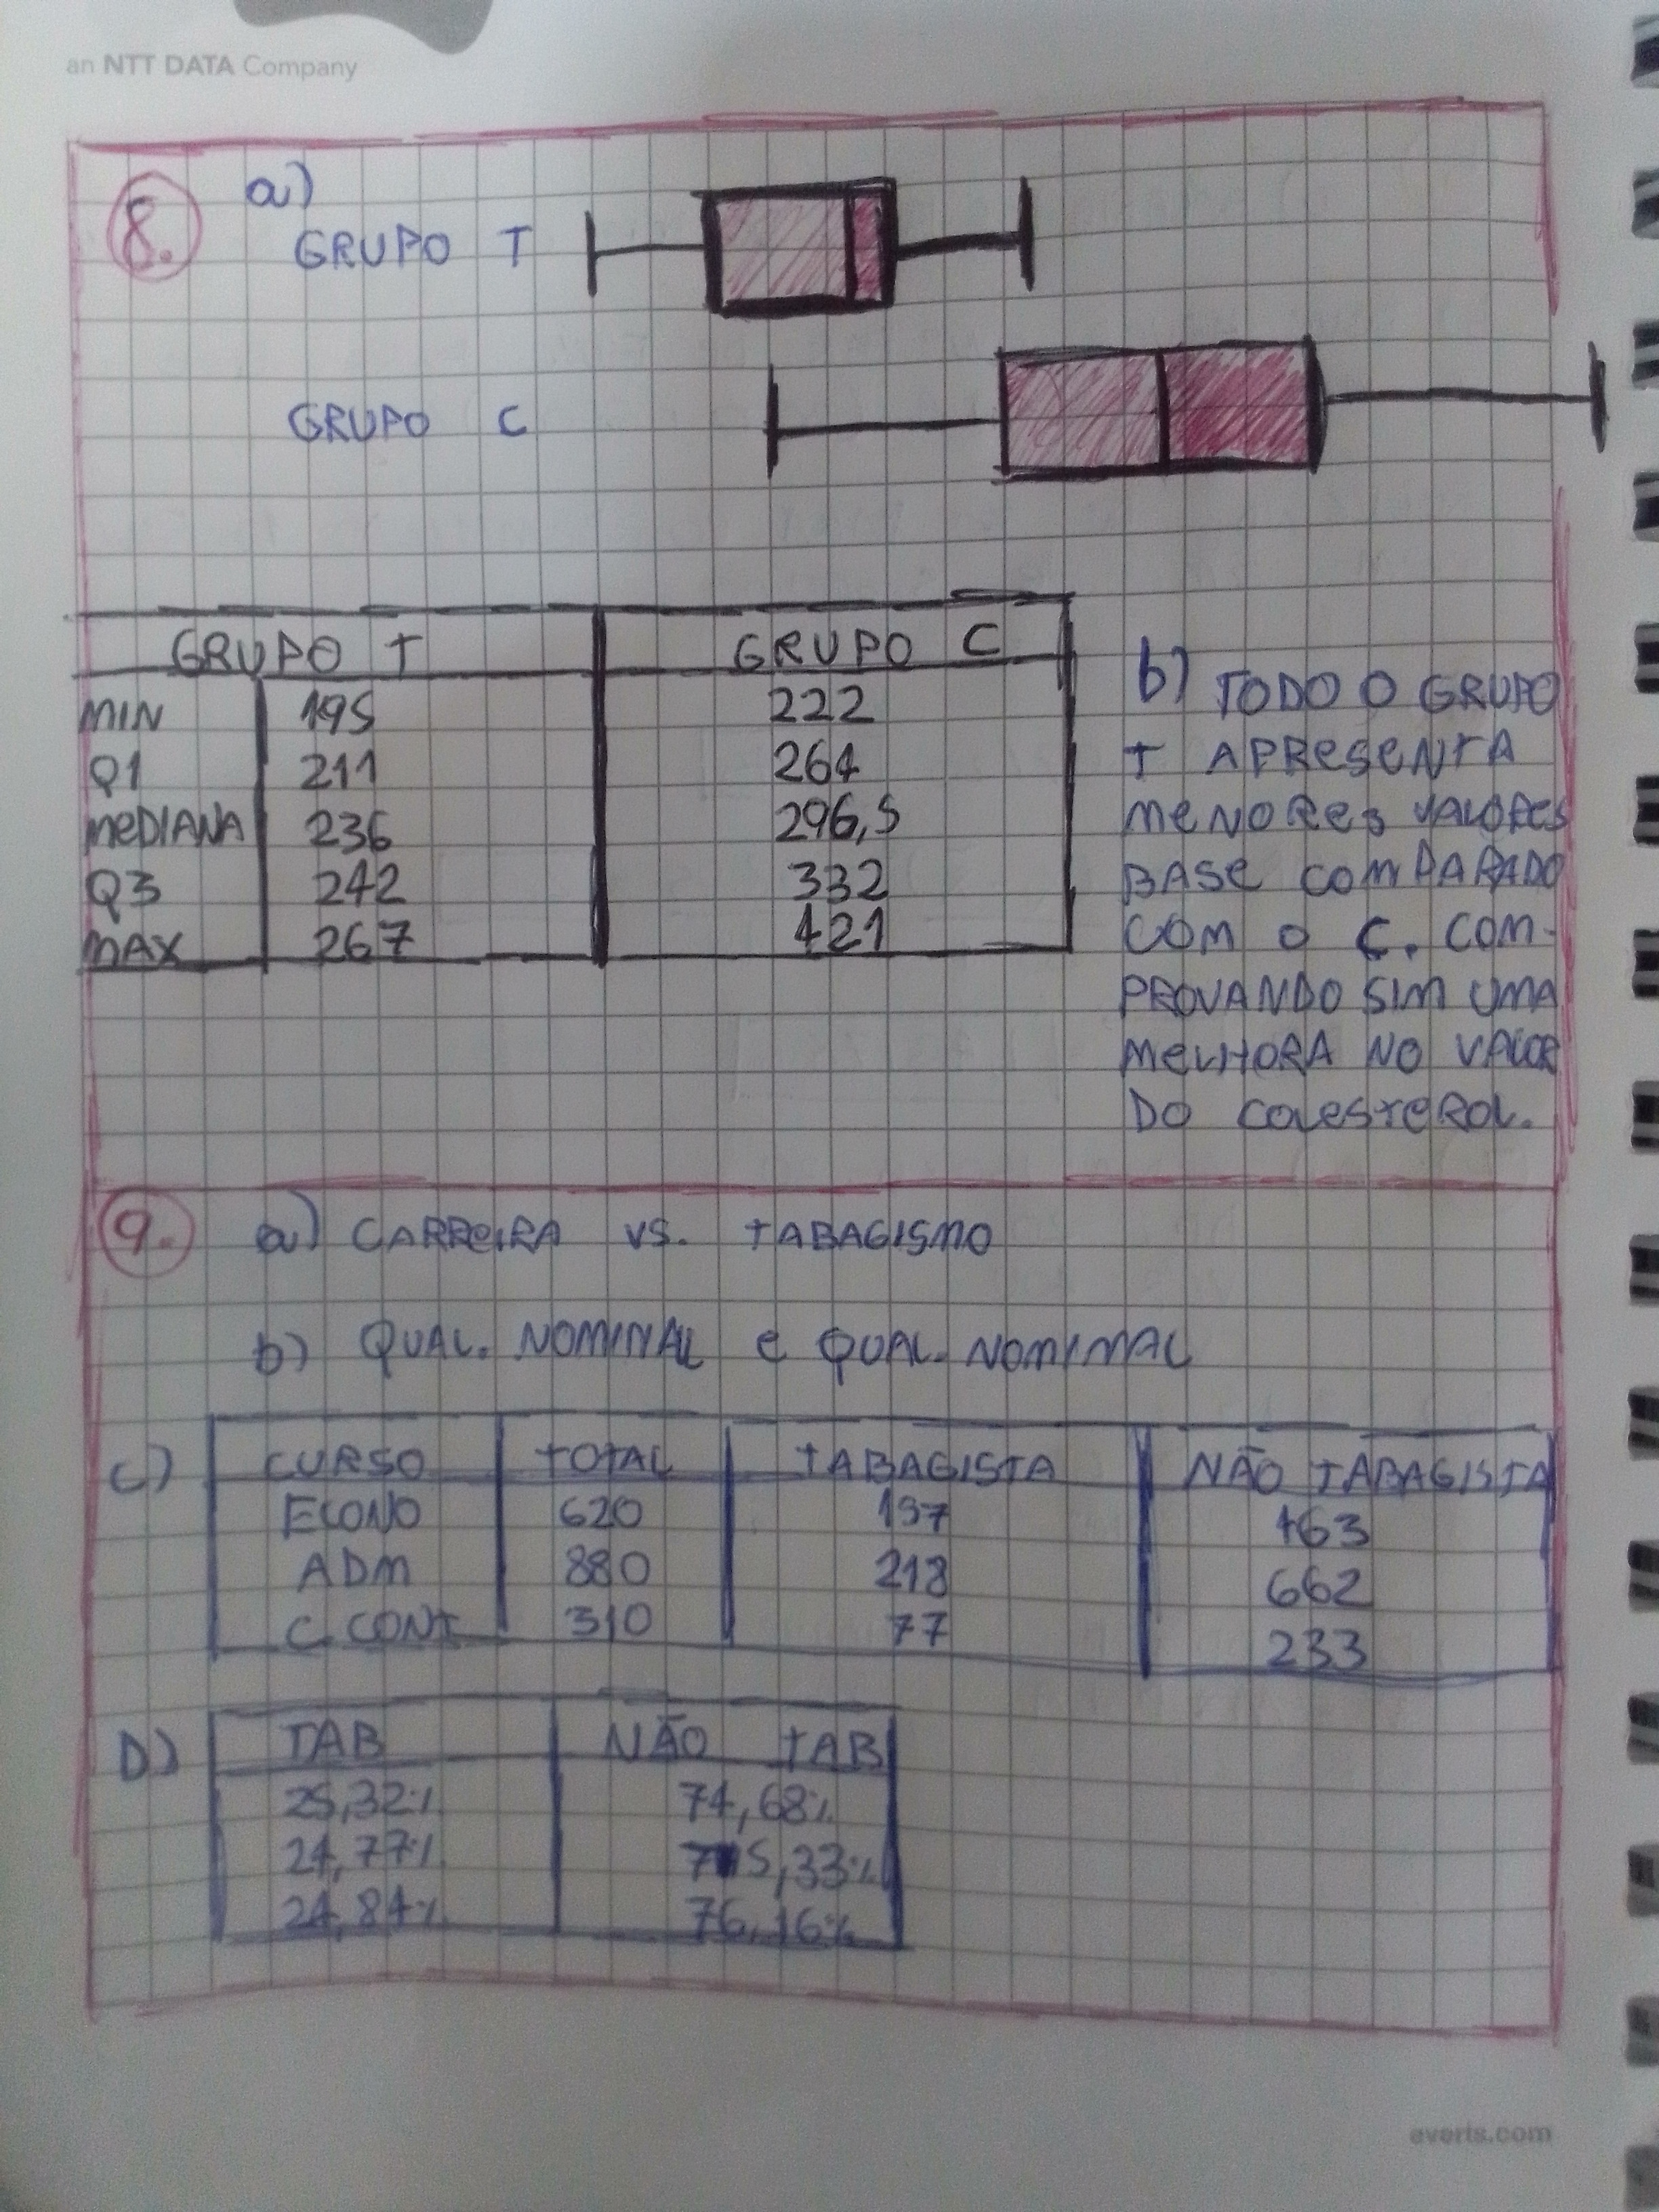 an NTT DATA Company
8. a)
GRUPO T
GRUPO C
GRUPO T GRUPO C
MIN 195 222
Q1 211 264
MEDIANA 236 296,5
Q3 242 332
MAX 267 421
b) TODO O GRUPO
T APRESENTA
MENORES VALORES
BASE COMPARADO
COM O C. COM-
PROVANDO SIM UMA
MELHORA NO VALOR
DO COLESTEROL.
9. a) CARREIRA VS. TABAGISMO
b) QUAL. NOMINAL E QUAL. NOMINAL
c) CURSO TOTAL TABAGISTA NÃO TABAGISTA
ECONO 620 157 463
ADM 880 218 662
C. CONT 310 77 233
D) TAB NÃO TAB
25,32% 74,68%
24,77% 75,33%
24,84% 76,16%
everis.com